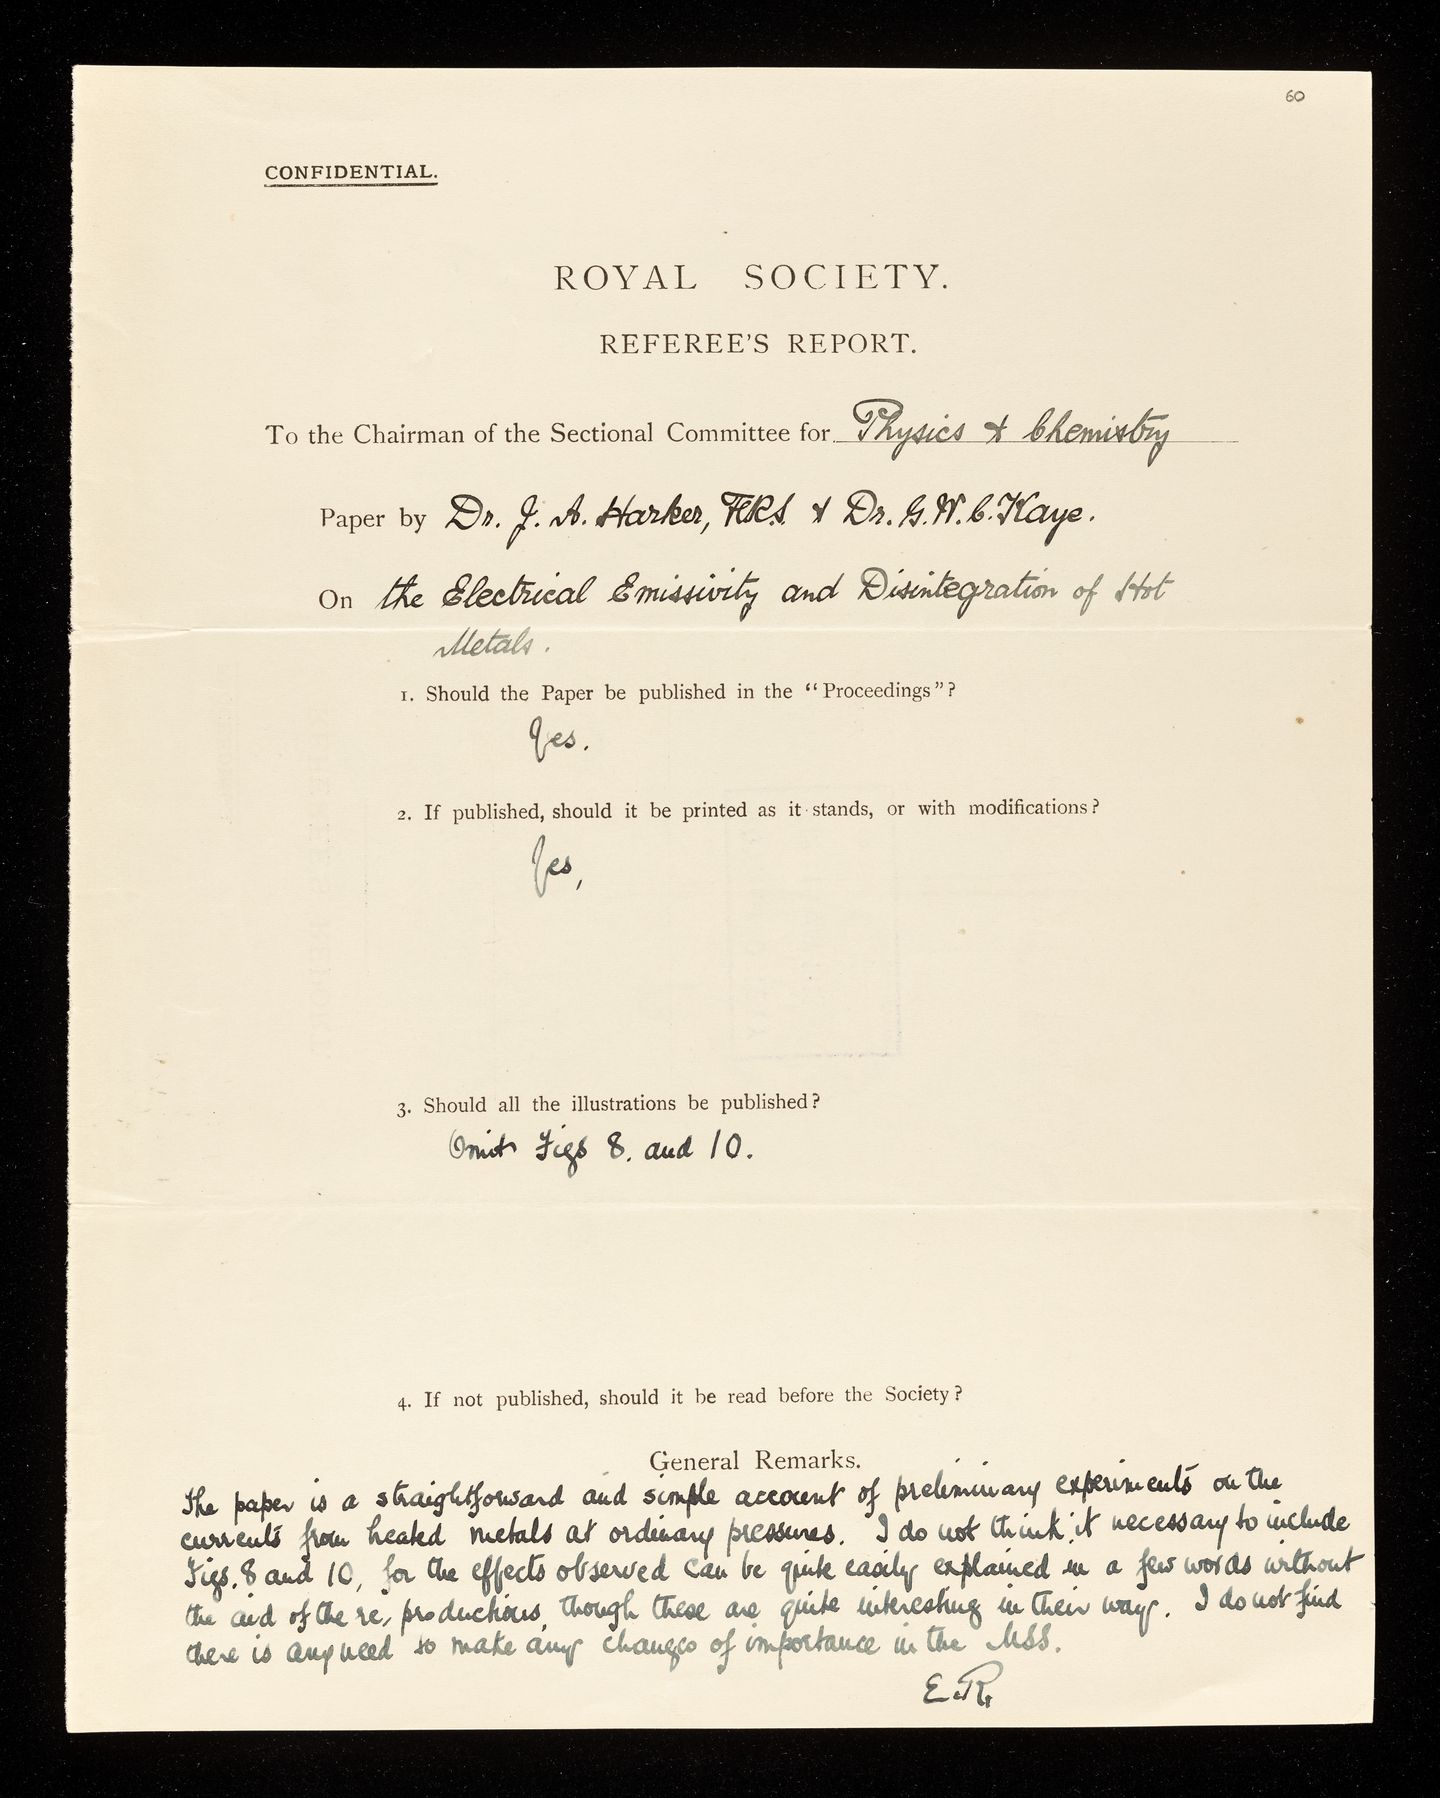 60
CONFIDENTIAL.
ROYAL SOCIETY.
REFEREE'S REPORT.
To the Chairman of the Sectional Committee for Physics & Chemistry
Paper by Dr. J. A. Harker, F.R.S. & Dr. G. W. C. Kaye.
On the Electrical Emissivity and Disintegration of Hot
Metals.
1. Should the Paper be published in the "Proceedings"?
Yes.
2. If published, should it be printed as it stands, or with modifications?
Yes,
3. Should all the illustrations be published?
Omit Figs 8. and 10.
4. If not published, should it be read before the Society?
General Remarks.
The paper is a straightforward and simple account of preliminary experiments on the
currents from heated metals at ordinary pressures. I do not think it necessary to include
Figs. 8 and 10, for the effects observed can be quite easily explained in a few words without
the aid of the re, productions, though these are quite interesting in their way. I do not find
there is any need to make any changes of importance in the MSS.
E.R.